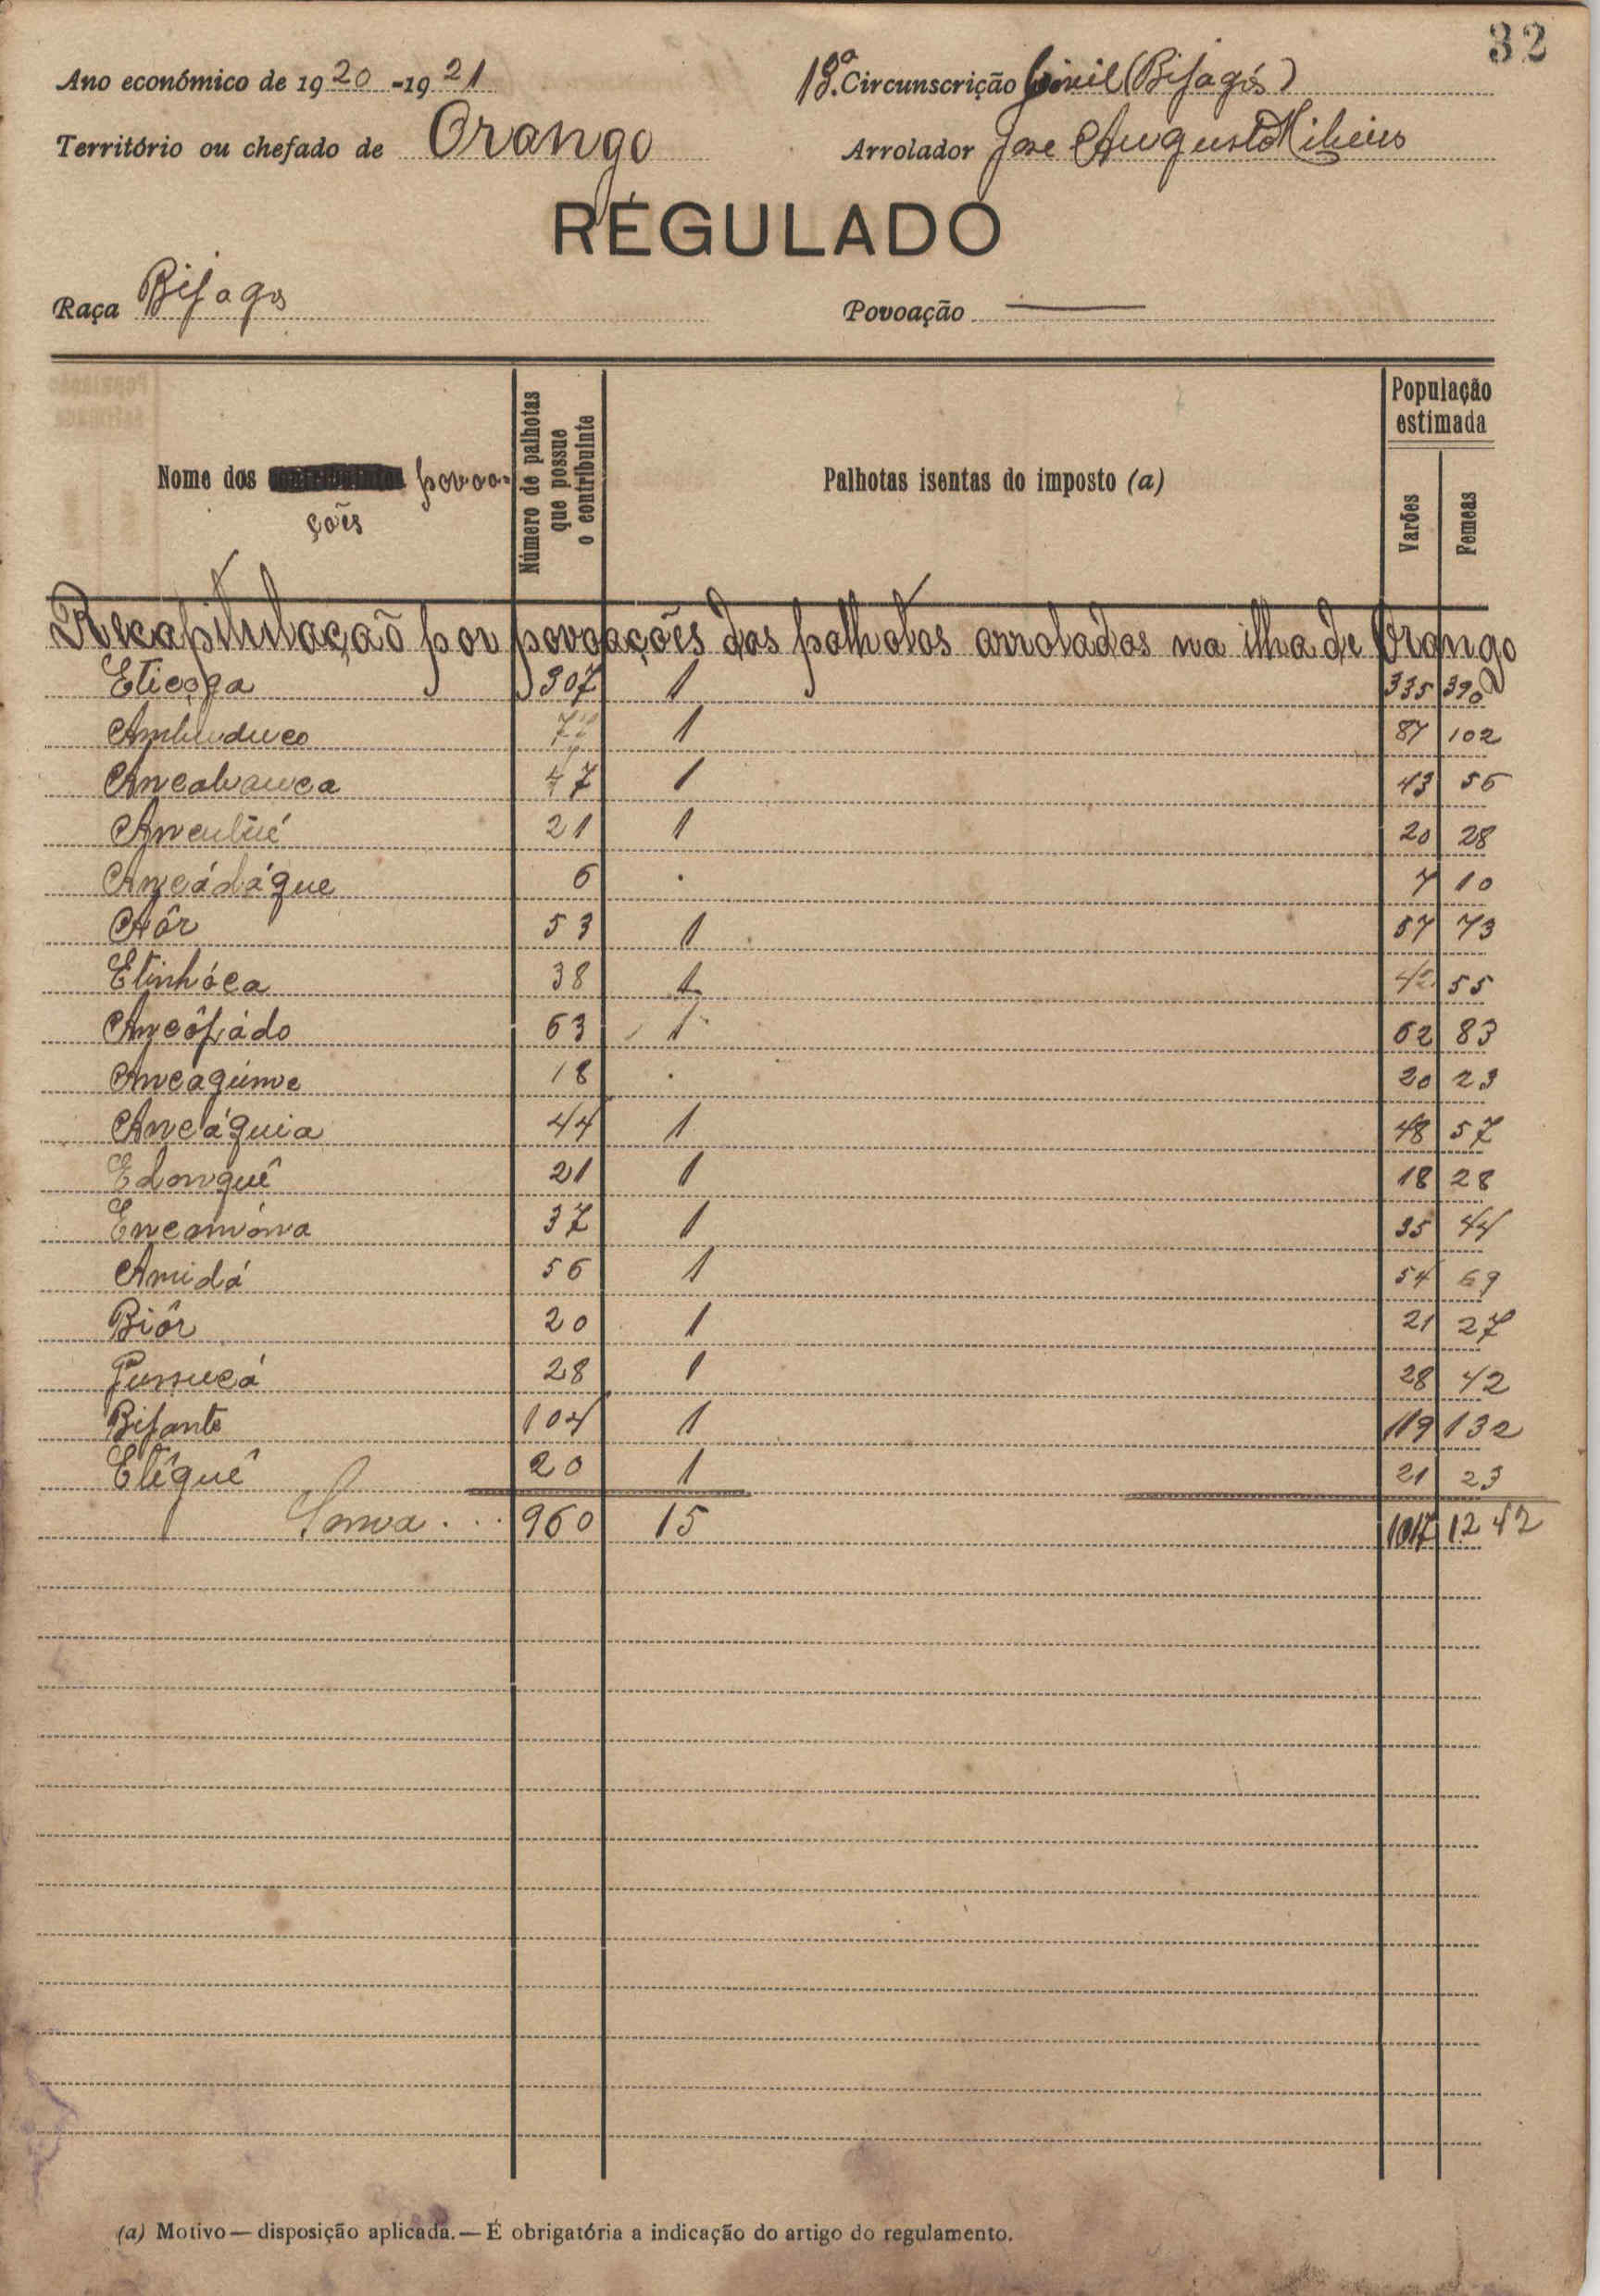 32
Ano económico de 1920-1921 13ª Circunscrição Civil (Bijagós)
Território ou chefado de Orango Arrolador José Augusto Ribeiro
REGULADO
Raça Bijagos Povoação ———
Nome dos povoações
Número de palhotas que possue o contribuinte
Palhotas isentas do imposto (a)
População estimada
Varões
Femeas
Recapitulação por povoações das palhotas arroladas na ilha de Orango
Eticoga 307 1 335 390
Ambuduco 77 1 87 102
Ancabanca 47 1 43 56
21 1 20 28
Ancádáque 6 . 7 10
Aôr 53 1 57 73
Etinhóca 38 1 42 55
Ancôpádo 63 1 62 83
Ancagúme 18 . 20 23
Ancáquia 44 1 48 57
Edonquê 21 1 18 28
37 1 35 44
Amidá 56 1 54 69
Biôr 20 1 21 27
28 1 28 42
Bijante 104 1 119 132
Etêquê 20 1 21 23
Soma ... 960 15 1017 1242
(a) Motivo — disposição aplicada. — É obrigatória a indicação do artigo do regulamento.